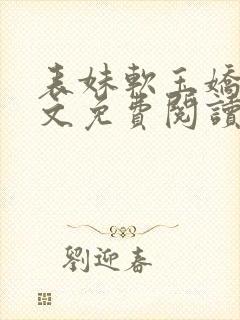 表妹軟玉嬌
文免費閱讀
劉迎春